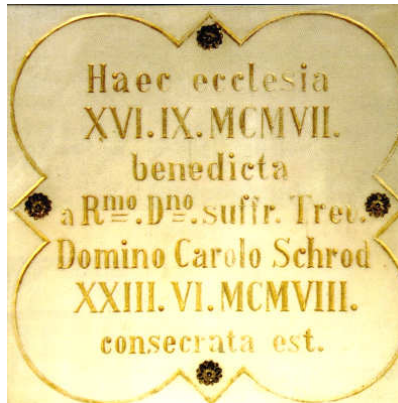 Haec ecclesia
XVI.IX.MCMVII.
benedicta
a Rmo. Dno. suffr. Trev.
Domino Carolo Schrod
XXIII.VI.MCMVIII.
consecrata est.